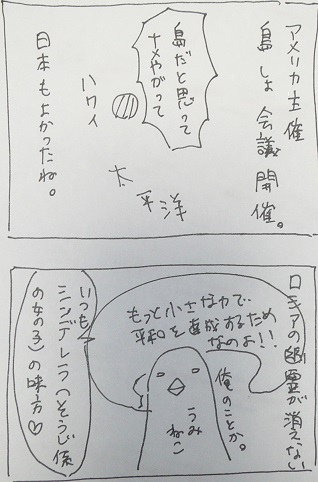 アメリカ主催
島しょ会議開催。
島だと思って
ナメやがって
太平洋
ハワイ
日本もよかったね。
ロシアの幽霊が消えない
もっと小さなカで
平和を達成するため
なのよ!!
俺のことか。
うみねこ
いつも
シンデレラ(そうじ係
の女の子)の味方♡